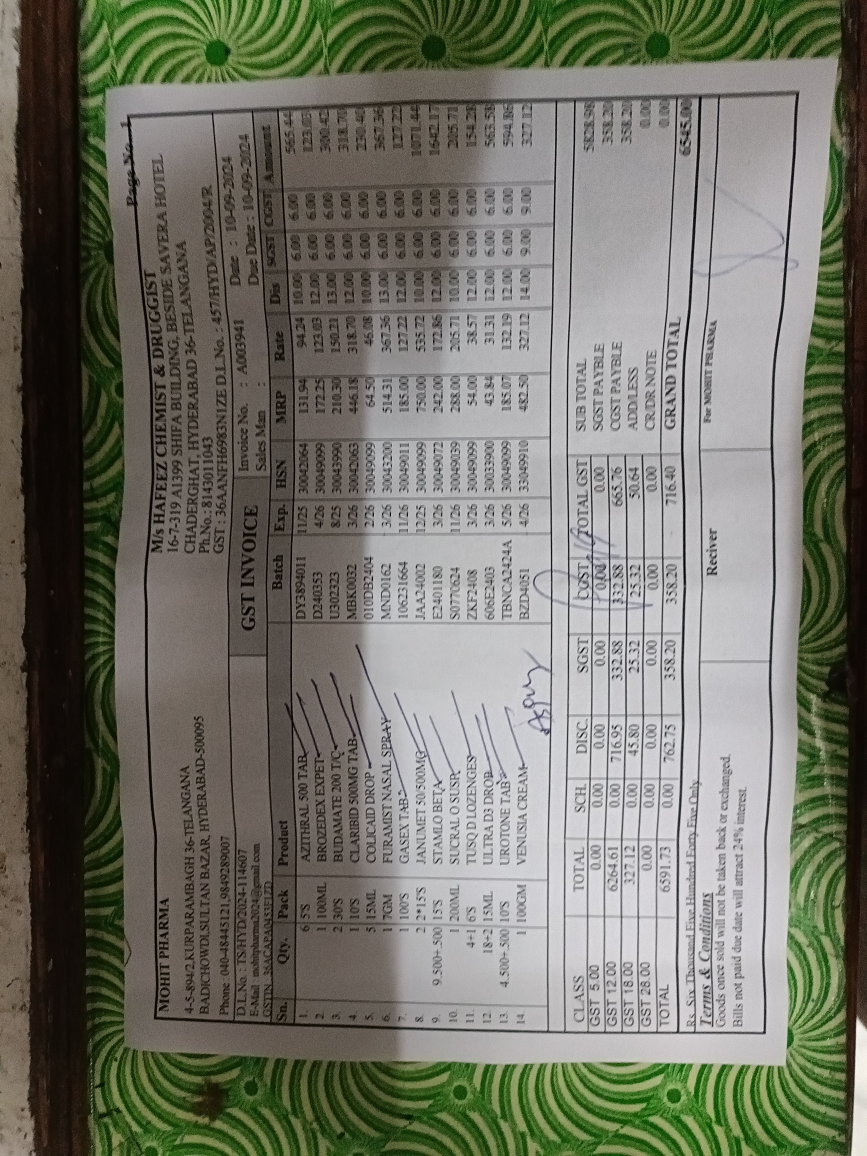 Page No. 1
MOHIT PHARMA
4-5-894/2,KURPARAMBAGH 36-TELANGANA
BADICHOWDI,SULTAN BAZAR, HYDERABAD-500095
Phone : 040-48445121,9849289007
D.L.No. : TS/HYD/2024-114607
E-Mail mohitpharma2024@gmail.com
GSTIN
M/s HAFEEZ CHEMIST & DRUGGIST
16-7-319 A1399 SHIFA BUILDING, BESIDE SAVERA HOTEL
CHADERGHAT, HYDERABAD 36-TELANGANA
Ph.No.: 8143011043
GST : 36AANFH6983N1ZE D.L.No. : 457/HYD/AP/2004/R
GST INVOICE
Invoice No. : A003941 Date : 10-09-2024
Sales Man : Due Date : 10-09-2024
Sn. Qty. Pack Product Batch Exp. HSN MRP Rate Dis SGST CGST Amount
1. 6 5'S AZITHRAL 500 TAB DY3894011 11/25 30042064 131.94 94.24 10.00 6.00 6.00 565.44
2. 1 100ML BROZEDEX EXPET D240353 4/26 30049099 172.25 123.03 12.00 6.00 6.00 123.03
3. 2 30'S BUDAMATE 200 T/C U302323 8/25 30043990 210.30 150.21 13.00 6.00 6.00 300.42
4. 1 10'S CLARIBID 500MG TAB MBK0032 3/26 30042063 446.18 318.70 12.00 6.00 6.00 318.70
5. 5 15ML COLICAID DROP 010DB2404 2/26 30049099 64.50 46.08 10.00 6.00 6.00 230.40
6. 1 7GM FURAMIST NASAL SPRAY MND0162 3/26 30043200 514.31 367.36 13.00 6.00 6.00 367.36
7. 1 100'S GASEX TAB 106231664 11/26 30049011 185.00 127.22 12.00 6.00 6.00 127.22
8. 2 2*15'S JANUMET 50/500MG JAA24002 12/25 30049099 750.00 535.72 10.00 6.00 6.00 1071.44
9. 9.500+.500 15'S STAMLO BETA E2401180 3/26 30049072 242.00 172.86 12.00 6.00 6.00 1642.17
10. 1 200ML SUCRAL O SUSP. S0770624 11/26 30049039 288.00 205.71 10.00 6.00 6.00 205.71
11. 4+1 6'S TUSQ D LOZENGES ZKF2408 3/26 30049099 54.00 38.57 12.00 6.00 6.00 154.28
12. 18+2 15ML ULTRA D3 DROP 606E2403 3/26 30033900 43.84 31.31 12.00 6.00 6.00 563.58
13. 4.500+.500 10'S UROTONE TAB TBNCA2424A 5/26 30049099 185.07 132.19 12.00 6.00 6.00 594.86
14. 1 100GM VENUSIA CREAM BZD4051 4/26 33049910 482.50 327.12 14.00 9.00 9.00 327.12
CLASS TOTAL SCH. DISC. SGST CGST TOTAL GST
GST 5.00 0.00 0.00 0.00 0.00 0.00 0.00
GST 12.00 6264.61 0.00 716.95 332.88 332.88 665.76
GST 18.00 327.12 0.00 45.80 25.32 25.32 50.64
GST 28.00 0.00 0.00 0.00 0.00 0.00 0.00
TOTAL 6591.73 0.00 762.75 358.20 358.20 716.40
SUB TOTAL 5828.98
SGST PAYBLE 358.20
CGST PAYBLE 358.20
ADD/LESS 0.00
CR/DR NOTE 0.00
GRAND TOTAL 6545.00
Rs. Six Thousand Five Hundred Forty Five Only
Terms & Conditions
Goods once sold will not be taken back or exchanged.
Bills not paid due date will attract 24% interest.
Reciver
For MOHIT PHARMA